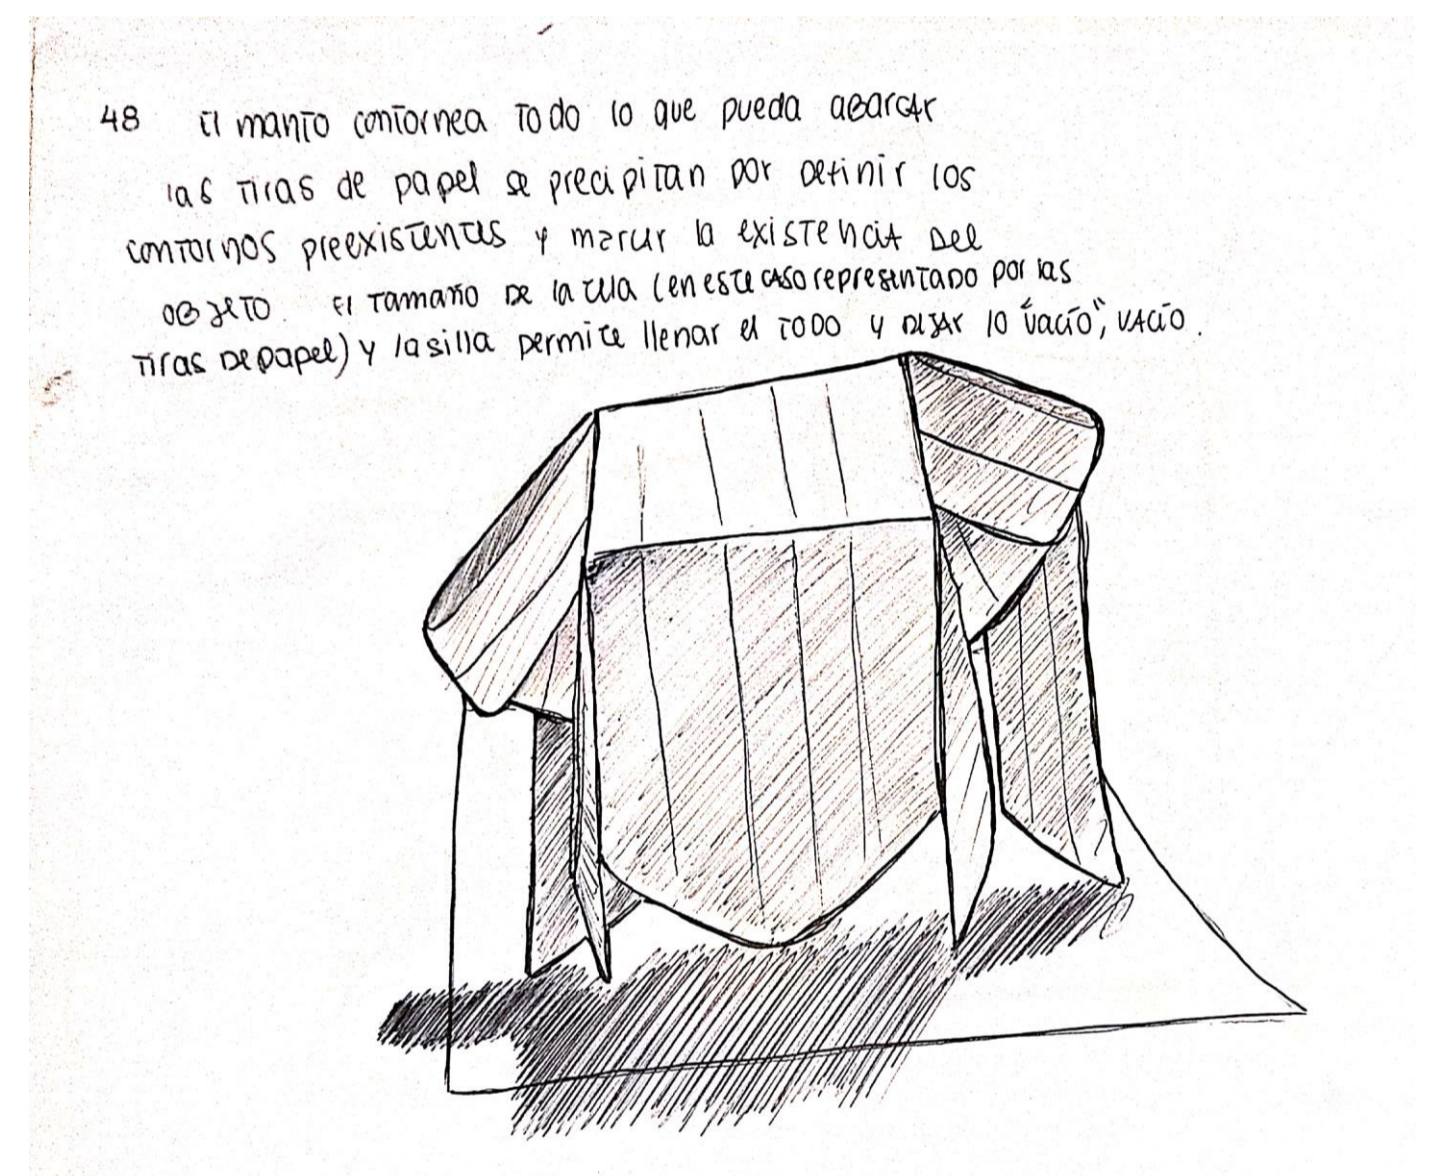 48 El manto contornea todo lo que pueda abarcar
las tiras de papel se precipitan por definir los
contornos preexistentes y marcar la existencia del
objeto. El tamaño de la tela (en este caso representado por las
tiras de papel) y la silla permite llenar el todo y dejar lo "vacío", vacío.